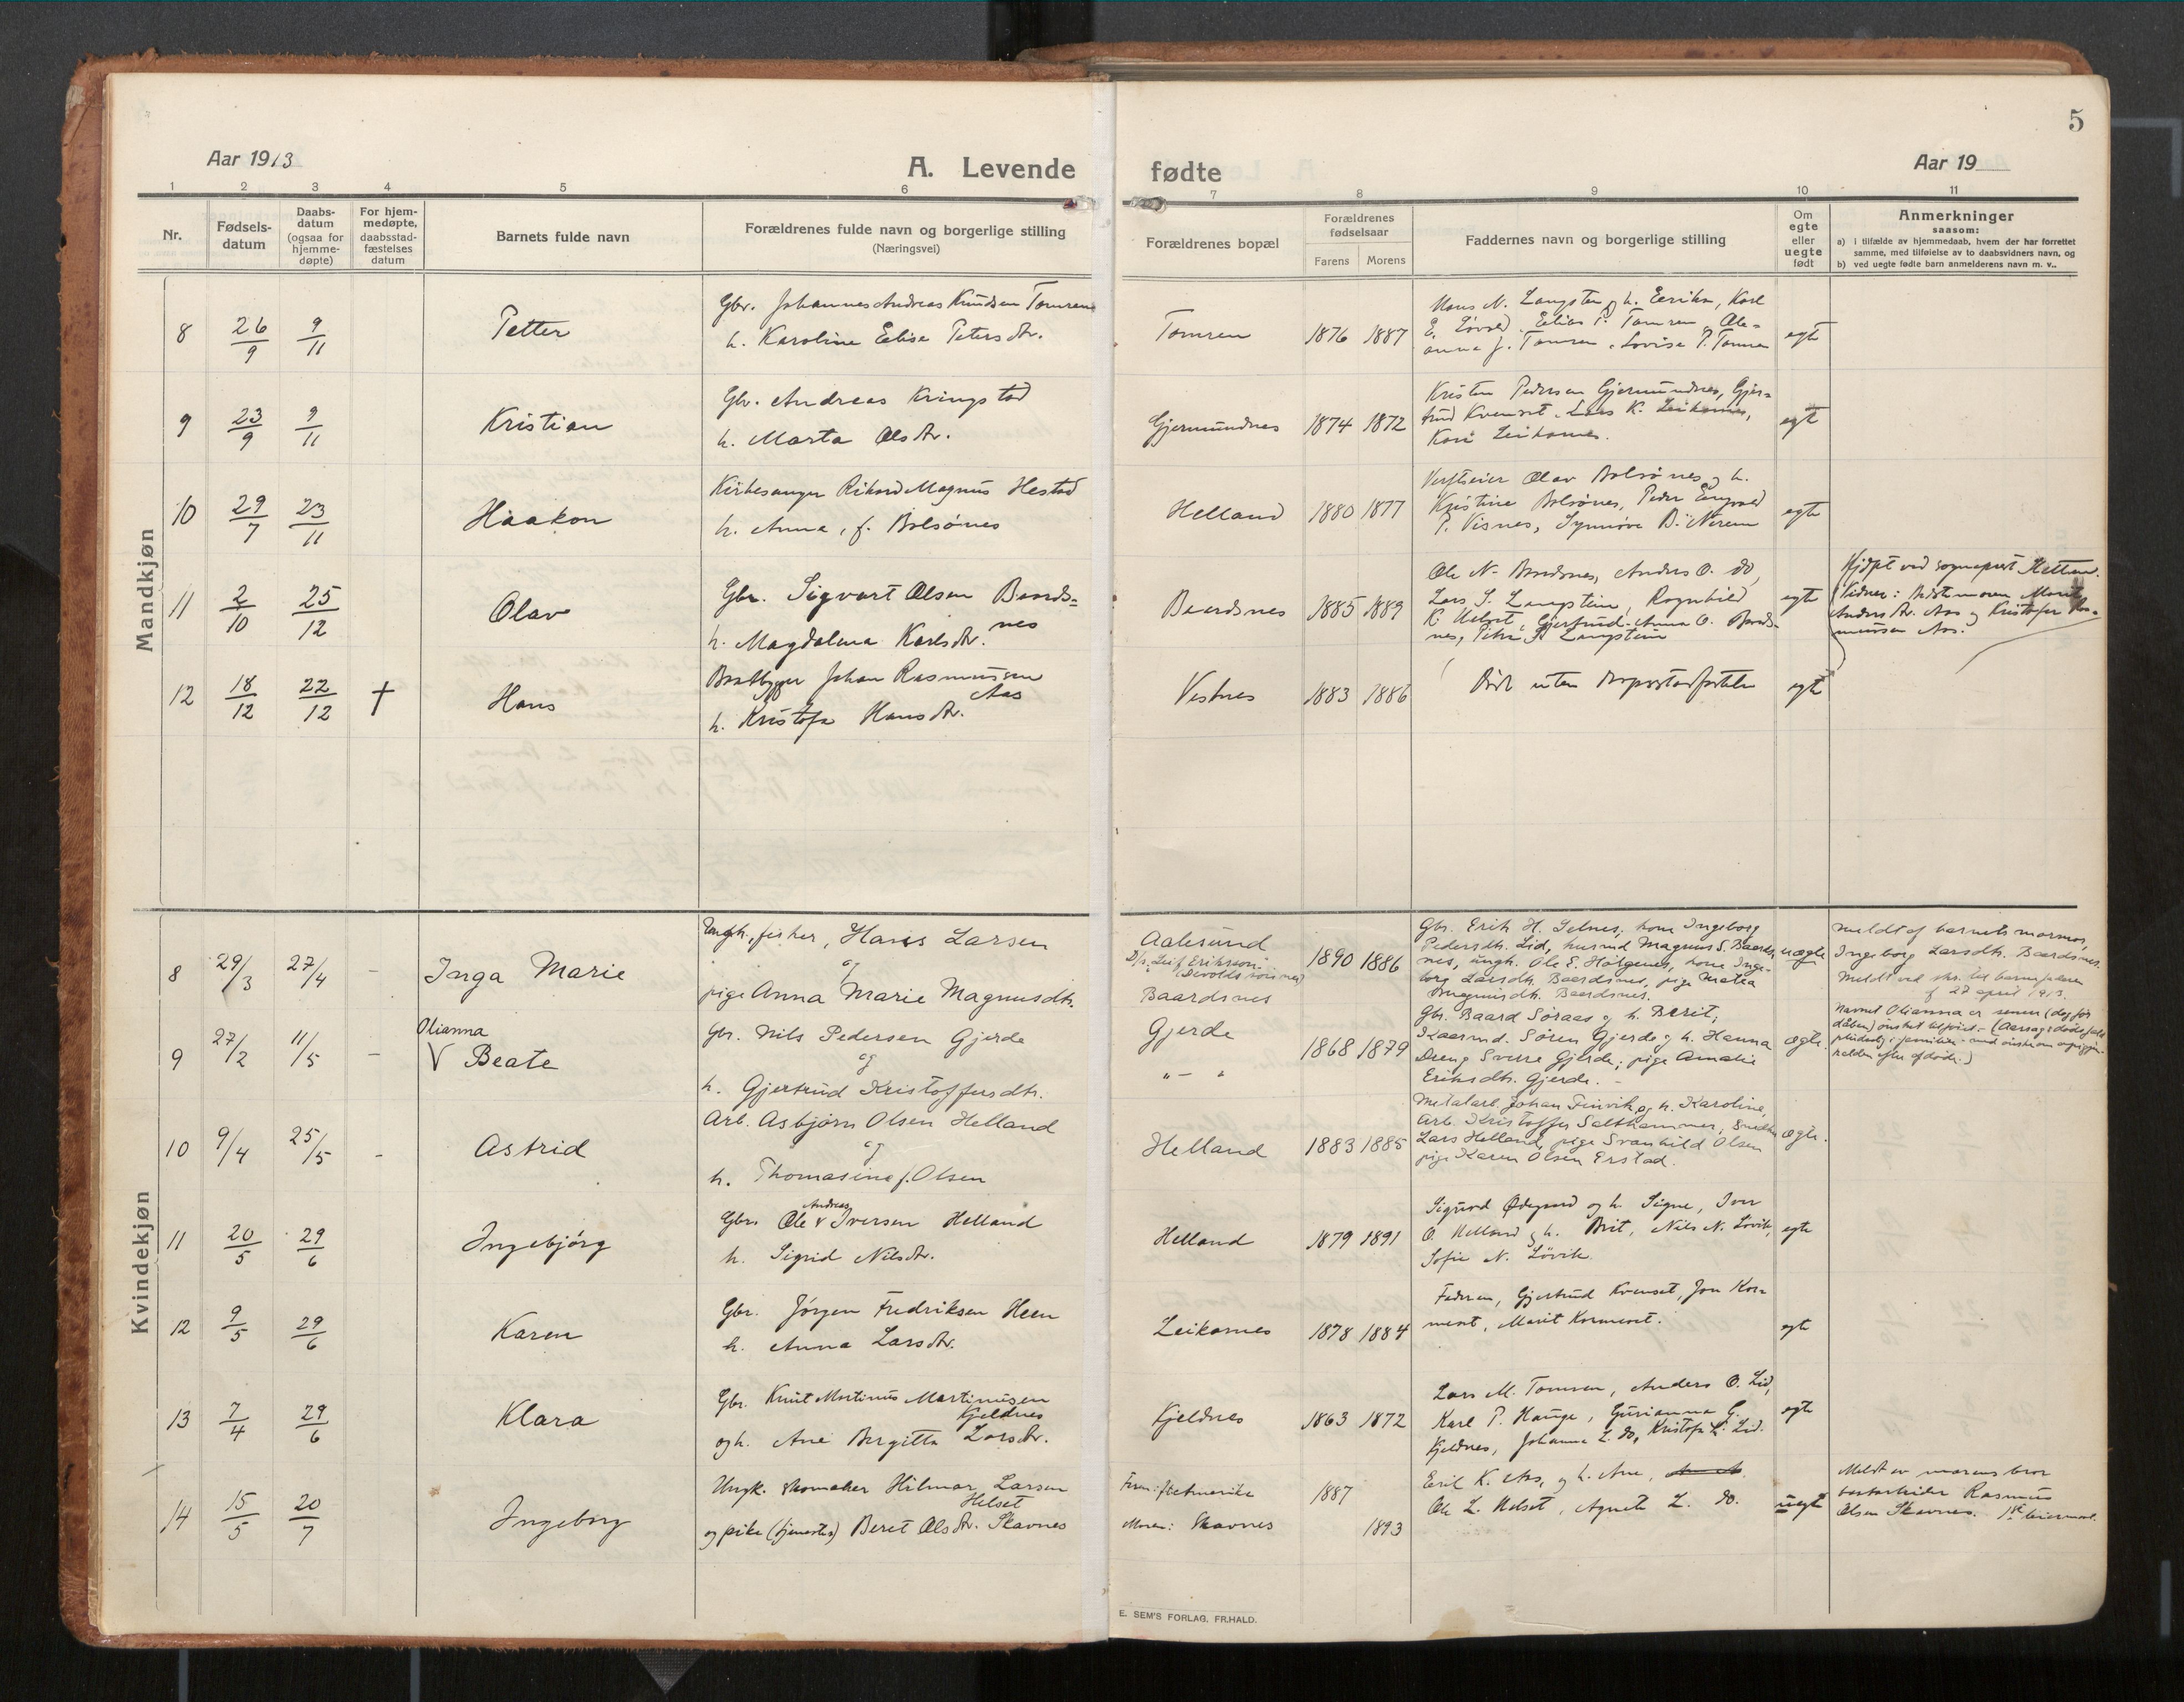 5
Aar 1913
A. Levende
fødte
Aar 19
1 2 3 4 5 6 7 8 9 10 11
Nr.
Fødsels-
datum
Daabs-
datum
(ogsaa for
hjemme-
døpte)
For hjem-
medøpte,
daabsstad-
fæstelses
datum
Barnets fulde navn
Forældrenes fulde navn og borgerlige stilling
(Næringsvei)
Forældrenes bopæl
Forældrenes
fødselsaar
Farens Morens
Faddernes navn og borgerlige stilling
Om
egte
eller
uegte
født
Anmerkninger
saasom:
a) i tilfælde av hjemmedaab, hvem der har forrettet
samme, med tilføielse av to daabsvidners navn, og
b) ved uegte fødte barn anmelderens navn m. v..
Mandkjøn
8 26/9 9/11 Petter
Gbr. Johannes Andreas Knudsen Tomren
h. Karoline Elise Petersdtr.
Tomren 1876 1887
Hans N. Langsten og h. Eerika, Karl
E. Løvold, Elias P. Tomren, Ole-
anna J. Tomren, Lovise P. Tomren
egte
9 23/9 9/11 Kristian
Gbr. Andreas Kringstad
h. Marta Olsdtr.
Gjermundnes 1874 1872
Kristen Pedersen Gjermundnes, Gjer-
trud Kvenset, Lars K. Leikarnes,
Kari Leikarnes.
egte
10 29/7 23/11 Haakon
Kirkesanger Rikard Magnus Hestad
h. Anna, f. Bolsønes
Helland 1880 1877
Verftseier Olav Bolsønes og h.
Kristine Bolsønes, Peder Engvald
P. Visnes, Synnøve B. Nerem
egte
11 2/10 25/12 Olav
Gbr. Sigvart Olsen Baards-
nes
h. Magdalena Karlsdtr.
Baardsnes 1885 1889
Ole N. Baardsnes, Anders O. do,
Lars S. Langstein, Ragnhild
K. Helset, Gjertrud Anna O. Baards-
nes, Petra Langstein
egte
Hjdpt ved sogneprest
Vidner: Marit
Andersdtr. Aas og Kristofer Ras-
mussen Aas.
12 18/12 22/12 † Hans
Baatbygger Johan Rasmussen
Aas
h. Kristofa Hansdtr.
Vestnes 1883 1886
Død uten
egte
Kvindekjøn
8 29/3 27/4 - Inga Marie
Ungk., fisker, Hans Larsen
og
pige Anna Marie Magnusdtr.
Aalesund
D/s. Leif Erikson
Baardsnes
1890 1886
Gbr. Erik H. Selnes, kone Ingeborg
Pedersdtr. Lid, husmd Magnus S. Baards-
nes, ungk. Ole E. Hølgenes, kone Inge-
borg Larsdtr. Baardsnes, pige Matea
Magnusdtr. Baardsnes.
uægte
meldt af barnets mormor,
Ingeborg Larsdtr. Baardsnes.
Meldt ved
27 april 1913.
9 27/2 11/5 -
Olianna
V Beate
Gbr. Nils Pedersen Gjerde
og
h. Gjertrud Kristoffersdtr.
Gjerde
" - "
1868 1879
Gbr. Baard Søraas og h. Berit,
Kaarmd. Søren Gjerde og h. Hanna
Dreng Sverre Gjerde, pige Amalie
Eriksdtr. Gjerde. -
ægte.
Navnet Olianna er senere (dog før
dåben) ønsket tilføiet. -
10 9/4 25/5 - Astrid
Arb. Asbjørn Olsen Helland
og
h. Thomasine f. Olsen
Helland 1883 1885
Metalarb. Johan Finvik og h. Karoline,
Arb. Kristoffer Saltkammer, Snedker
Lars Helland, pige Svanhild Olsen
pige Karen Olsen Erstad.
ægte.
11 20/5 29/6 Ingebjørg
Andreas
Gbr. Ole V Iversen Helland
h. Sigrid Nilsdtr.
Helland 1879 1891
Sigurd Ødegaard og h. Signe, Iver
O. Helland og h. Brit, Nils N. Løvik,
Sofie N. Løvik.
egte
12 9/5 29/6 Karen
Gbr. Jørgen Fredriksen Heen
h. Anna Larsdtr.
Leikarnes 1878 1884
Faderen, Gjertrud Kvenset, Jon Kor-
meset, Marit Kormeset.
egte
13 7/4 29/6 Klara
Gbr. Knut Martinus Martinusen
Kjeldnes
og h. Ane Bergitta Larsdtr.
Kjeldnes 1863 1872
Lars M. Tomren, Anders O. Lid,
Karl P. Hauge, Gurianna G.
Kjeldnes, Johanna L. do, Kristofa L. Lid.
egte
14 15/5 20/7 Ingeborg
Ungk. skomaker Hilmar Larsen
Helset
og pike (tjenestes) Beret Olsdtr. Skavnes
Faren: Amerika 1887
Moren: Skavnes 1893
Erik K. Aas, og h. Ane,
Ole L. Helset, Agnete L. do.
uegte
Meldt av morens bror
Rasmus
Olsen Skavnes. 1ste leiermaal.
E. SEM'S FORLAG, FR.HALD.